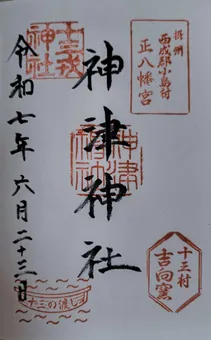 摂州
西成郡小島村
正八幡宮
神津神社
神津神社
十三戎神社
十三村
吉向窯
令和七年六月二十三日
十三の渡し